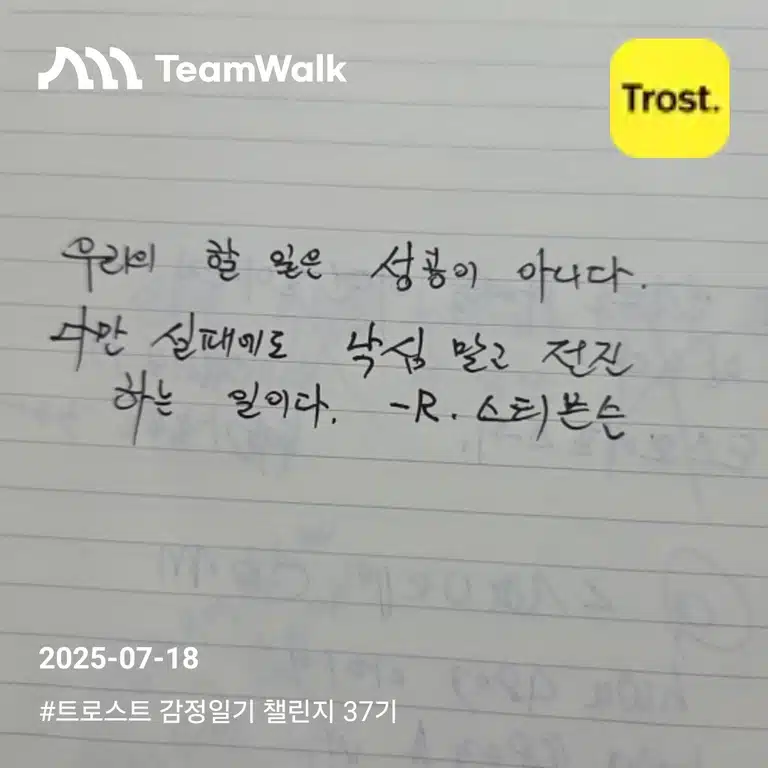 TeamWalk
Trost.
우리의 할 일은 성공이 아니다.
다만 실패에도 낙심 말고 전진
하는 일이다. -R. 스티븐슨
2025-07-18
#트로스트 감정일기 챌린지 37기